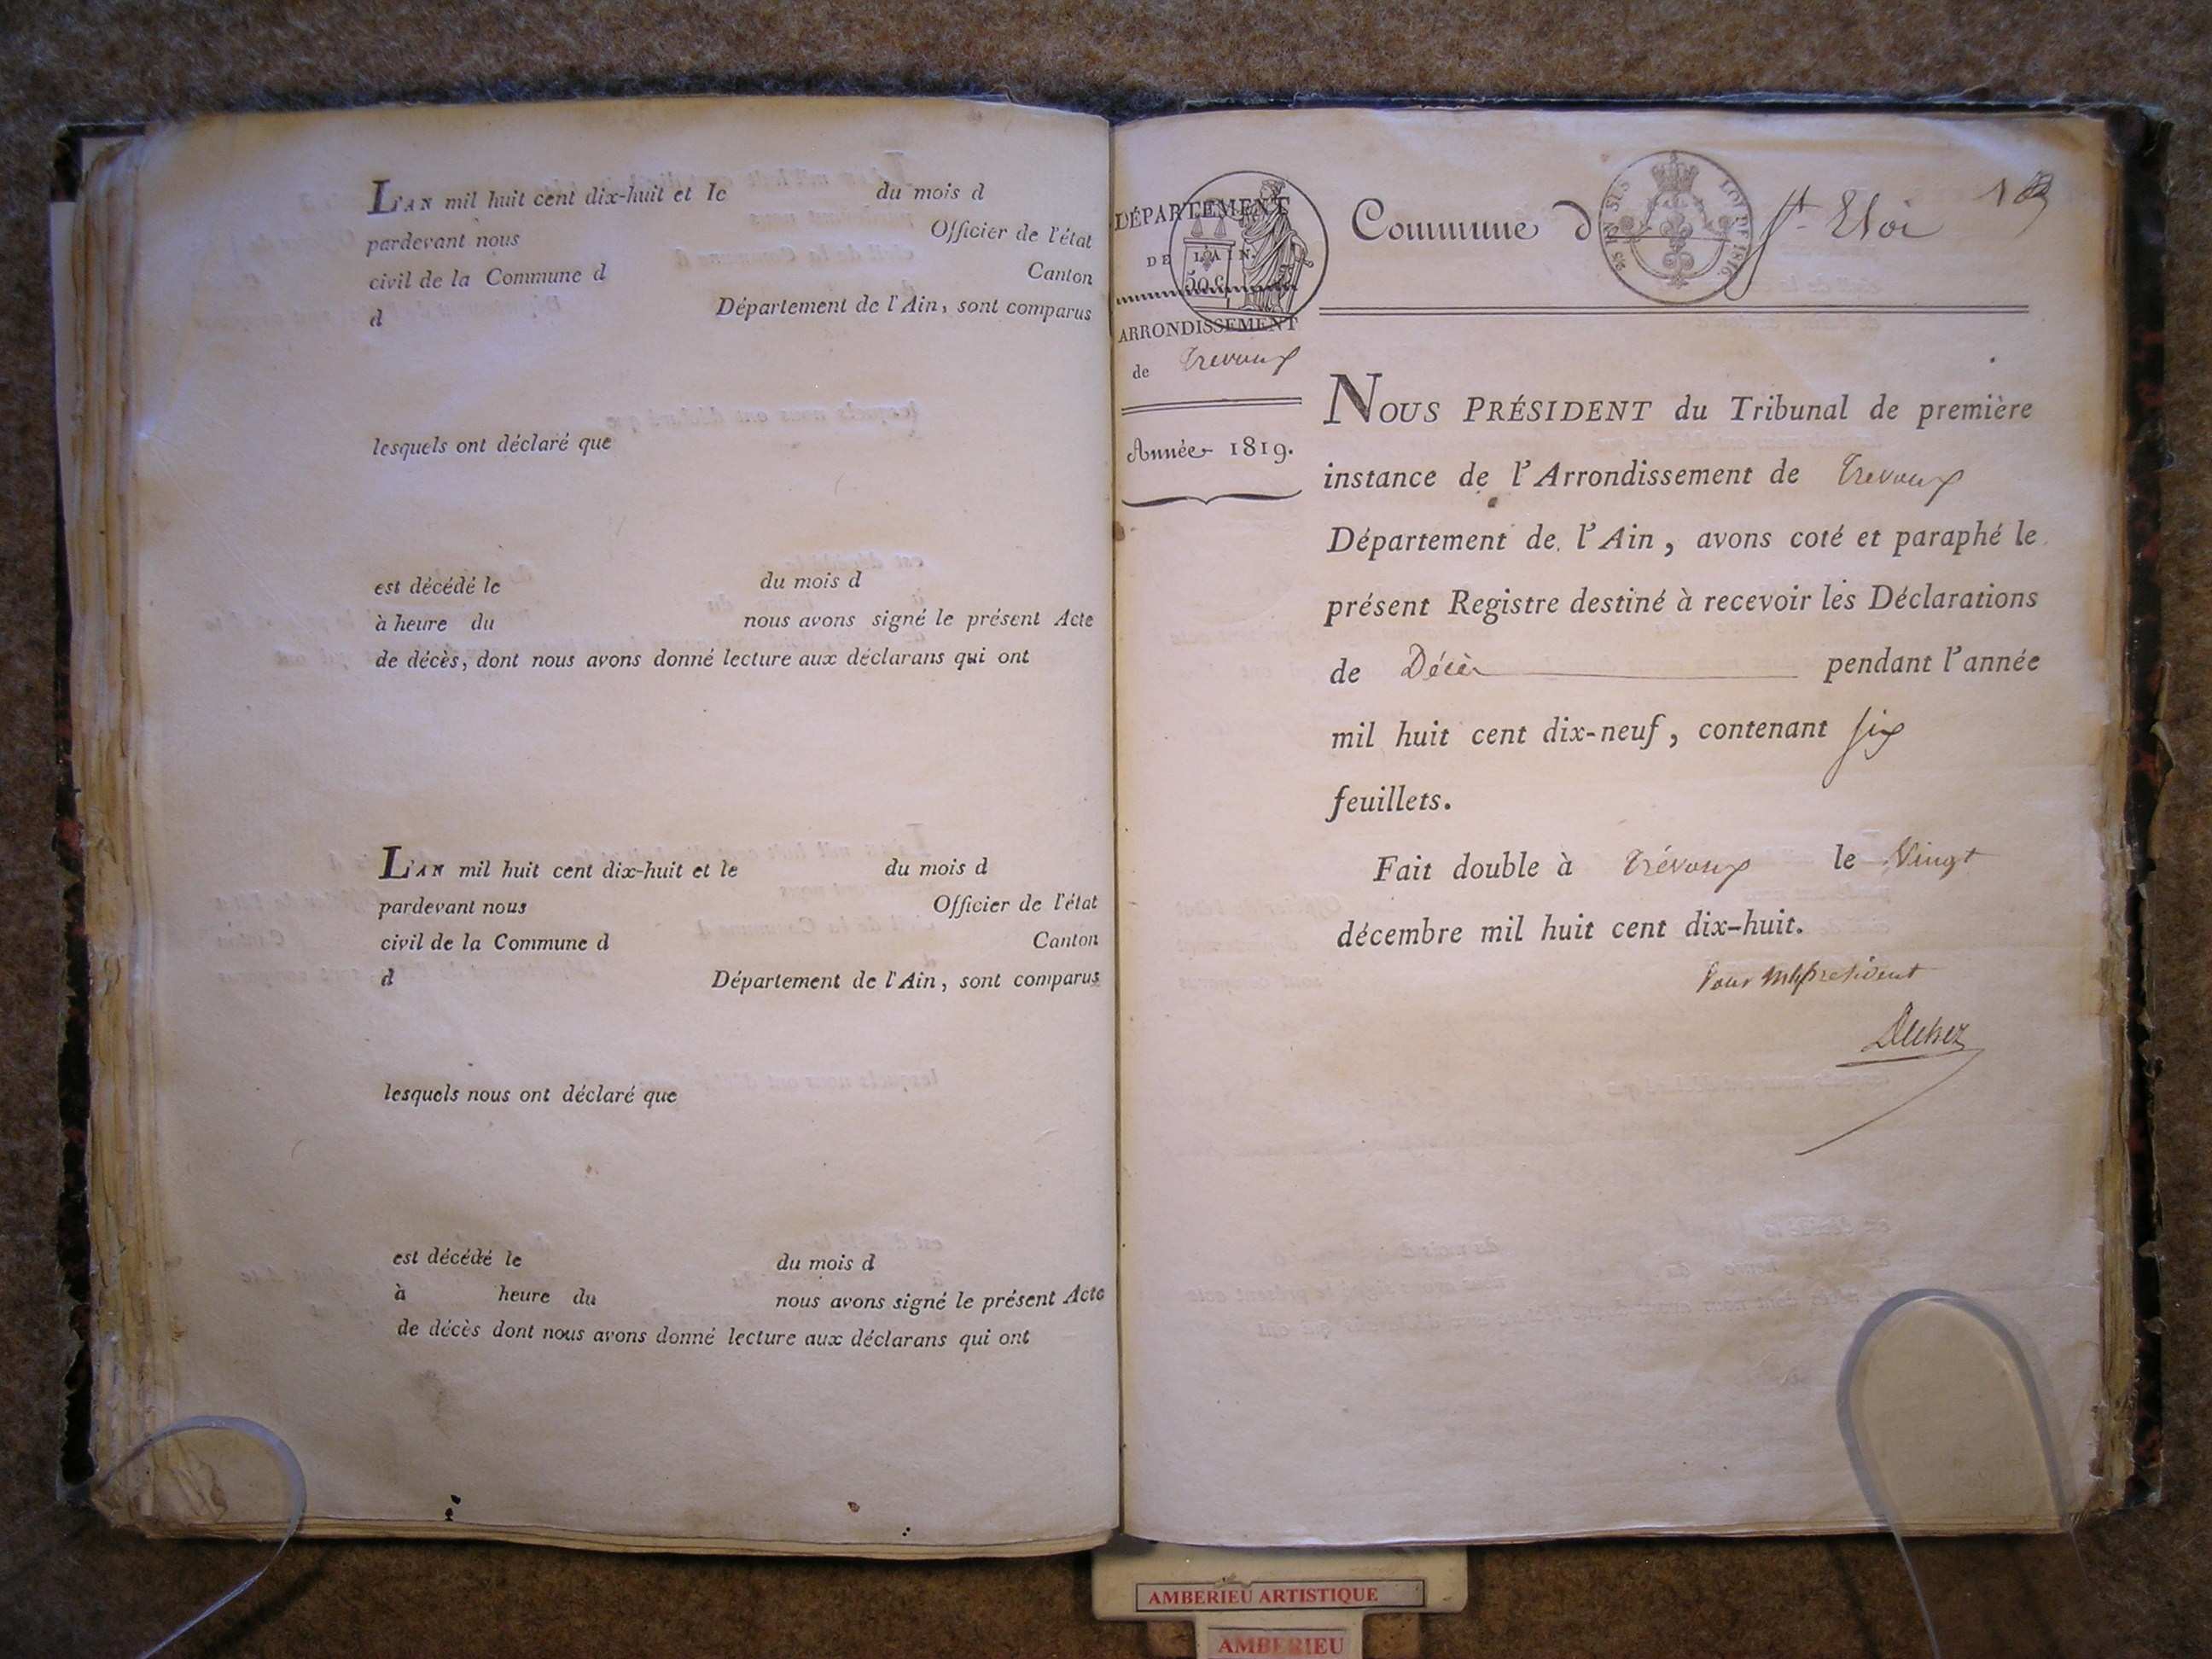 L'AN mil huit cent dix-huit et le du mois d
pardevant nous Officier de l'état
civil de la Commune d Canton
d Département de l'Ain, sont comparus
lesquels ont déclaré que
est décédé le du mois d
à heure du nous avons signé le présent Acte
de décès, dont nous avons donné lecture aux déclarans qui ont
L'AN mil huit cent dix-huit et le du mois d
pardevant nous Officier de l'état
civil de la Commune d Canton
d Département de l'Ain, sont comparus
lesquels nous ont déclaré que
est décédé le du mois d
à heure du nous avons signé le présent Acte
de décès dont nous avons donné lecture aux déclarans qui ont
DÉPARTEMENT
DE L'AIN.
50 C
ARRONDISSEMENT
de Trevoux
Année 1819.
Commune d St Eloi
LOI DE 1816
NOUS PRÉSIDENT du Tribunal de première
instance de l'Arrondissement de Trevoux
Département de l'Ain, avons coté et paraphé le
présent Registre destiné à recevoir les Déclarations
de Décès pendant l'année
mil huit cent dix-neuf, contenant six
feuillets.
Fait double à Trévoux le Vingt
décembre mil huit cent dix-huit.
Pour président
AMBERIEU ARTISTIQUE
AMBERIEU